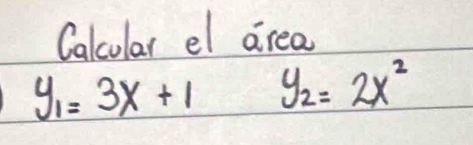 Calcular el área
) y₁= 3x + 1 y₂= 2x²